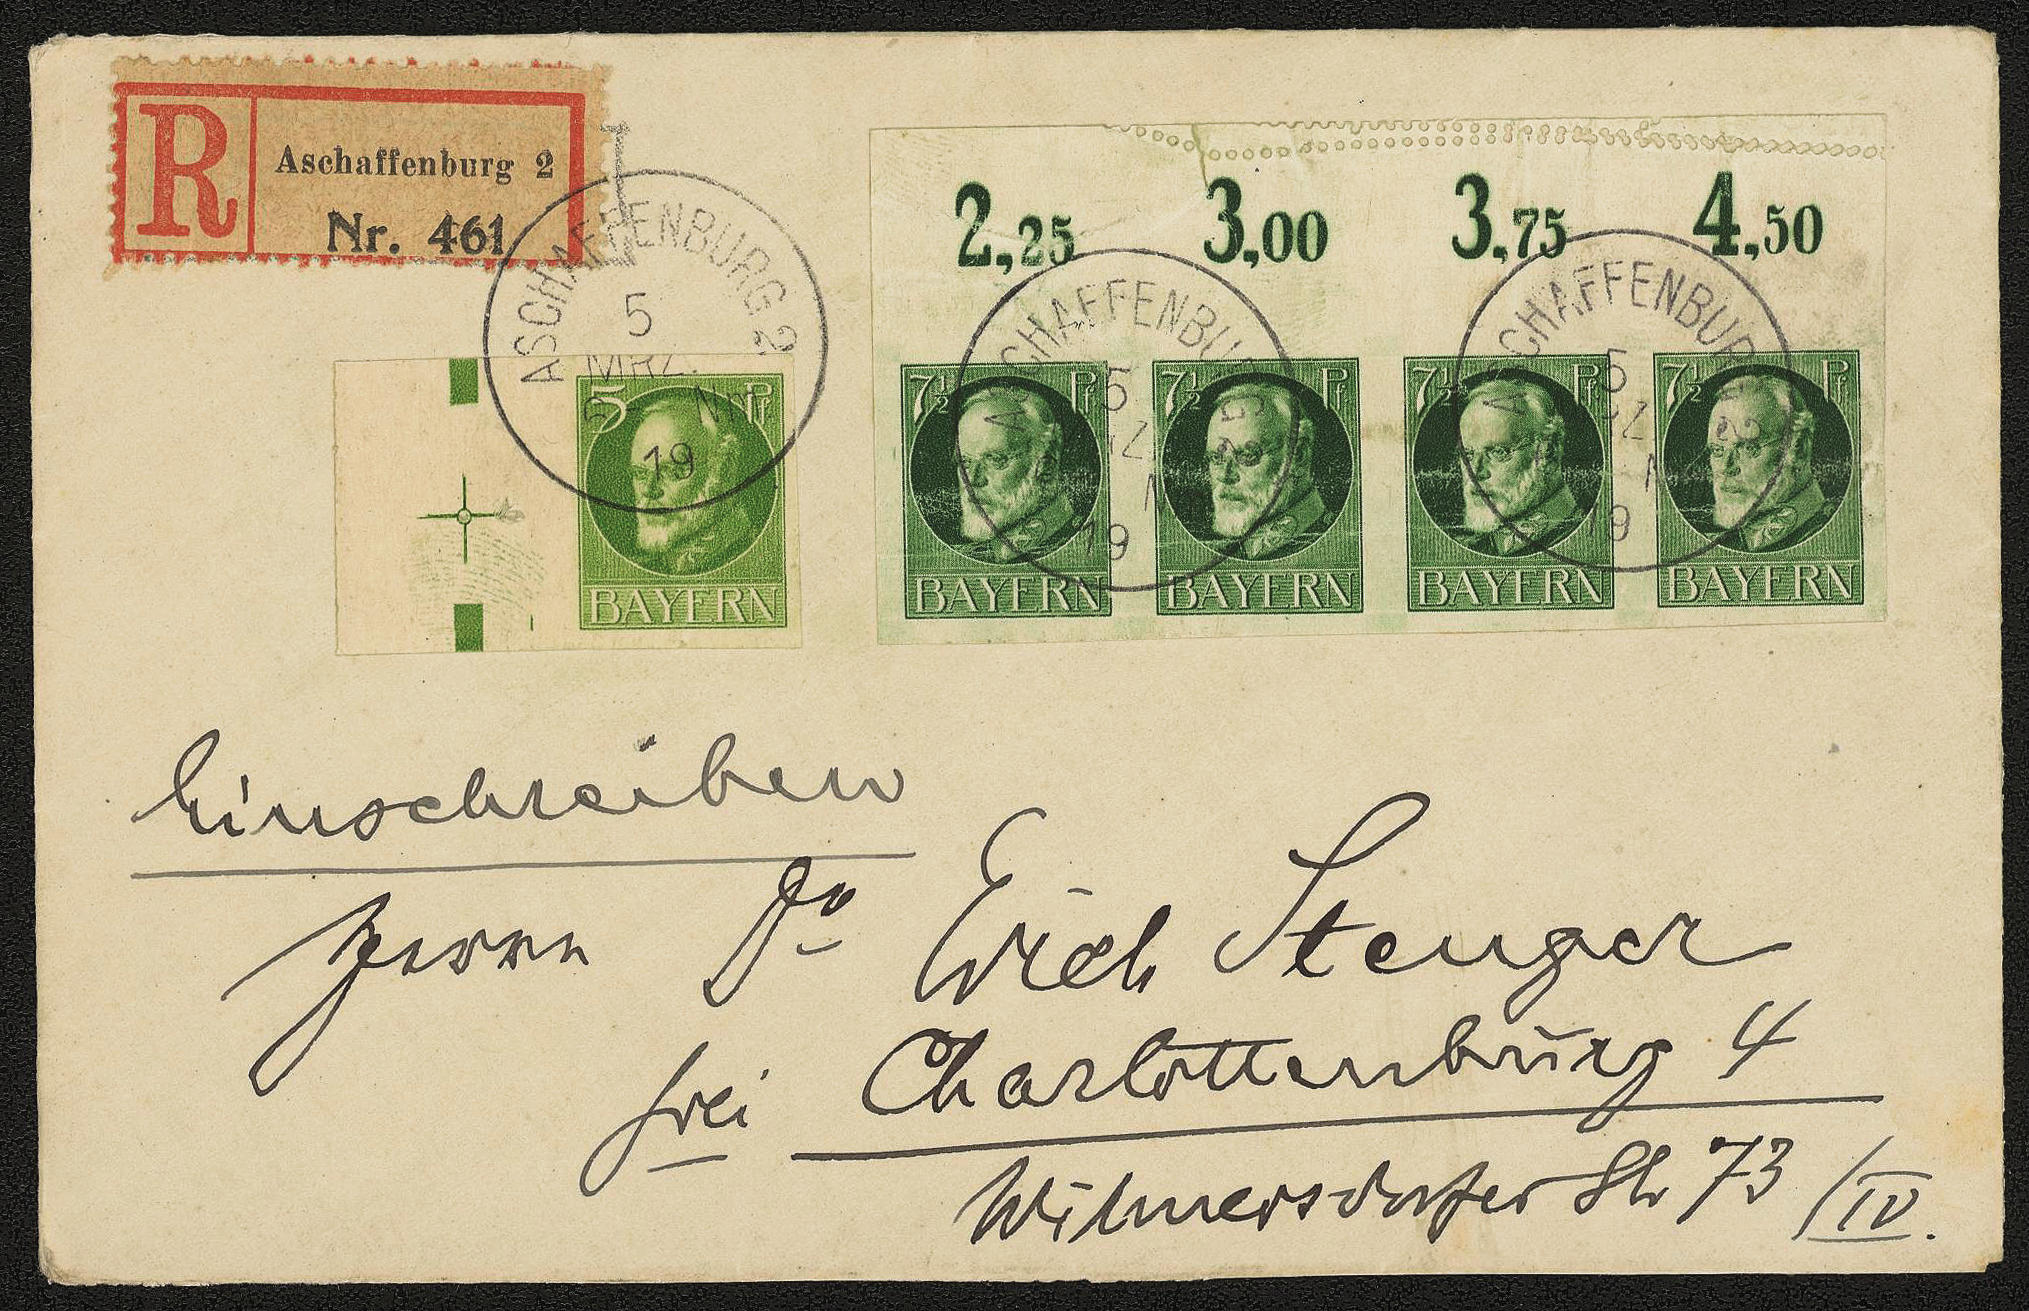 R
Aschaffenburg 2
Nr. 461
ASCHAFFENBURG 2
5
MRZ.
6 – N
19
2,25 3,00 3,75 4,50
5 Pf
BAYERN
7½ Pf
BAYERN
7½ Pf
BAYERN
7½ Pf
BAYERN
7½ Pf
BAYERN
ASCHAFFENBURG 2
5
19
ASCHAFFENBURG 2
5
19
Einschreiben
Herrn Dr Erich Stenger
frei Charlottenburg 4
Wilmersdorfer Str 73/IV.